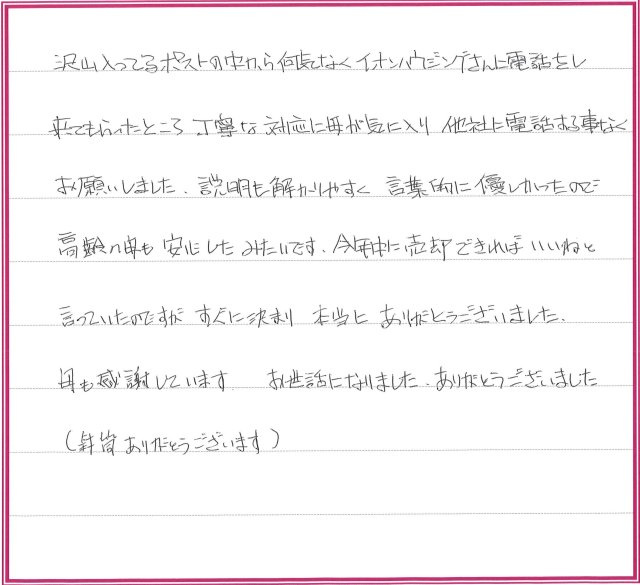 沢山入ってるポストの中から何気なくイオンハウジングさんに電話をし
来てもらったところ 丁寧な対応に母が気に入り 他社に電話する事なく
お願いしました、説明も解かりやすく 言葉的に優しかったので
高齢の母も 安心したみたいです、今年中に売却できればいいねと
言っていたのですが すぐに決まり 本当に ありがとうございました、
母も感謝しています お世話になりました、ありがとうございました
( ありがとうございます)